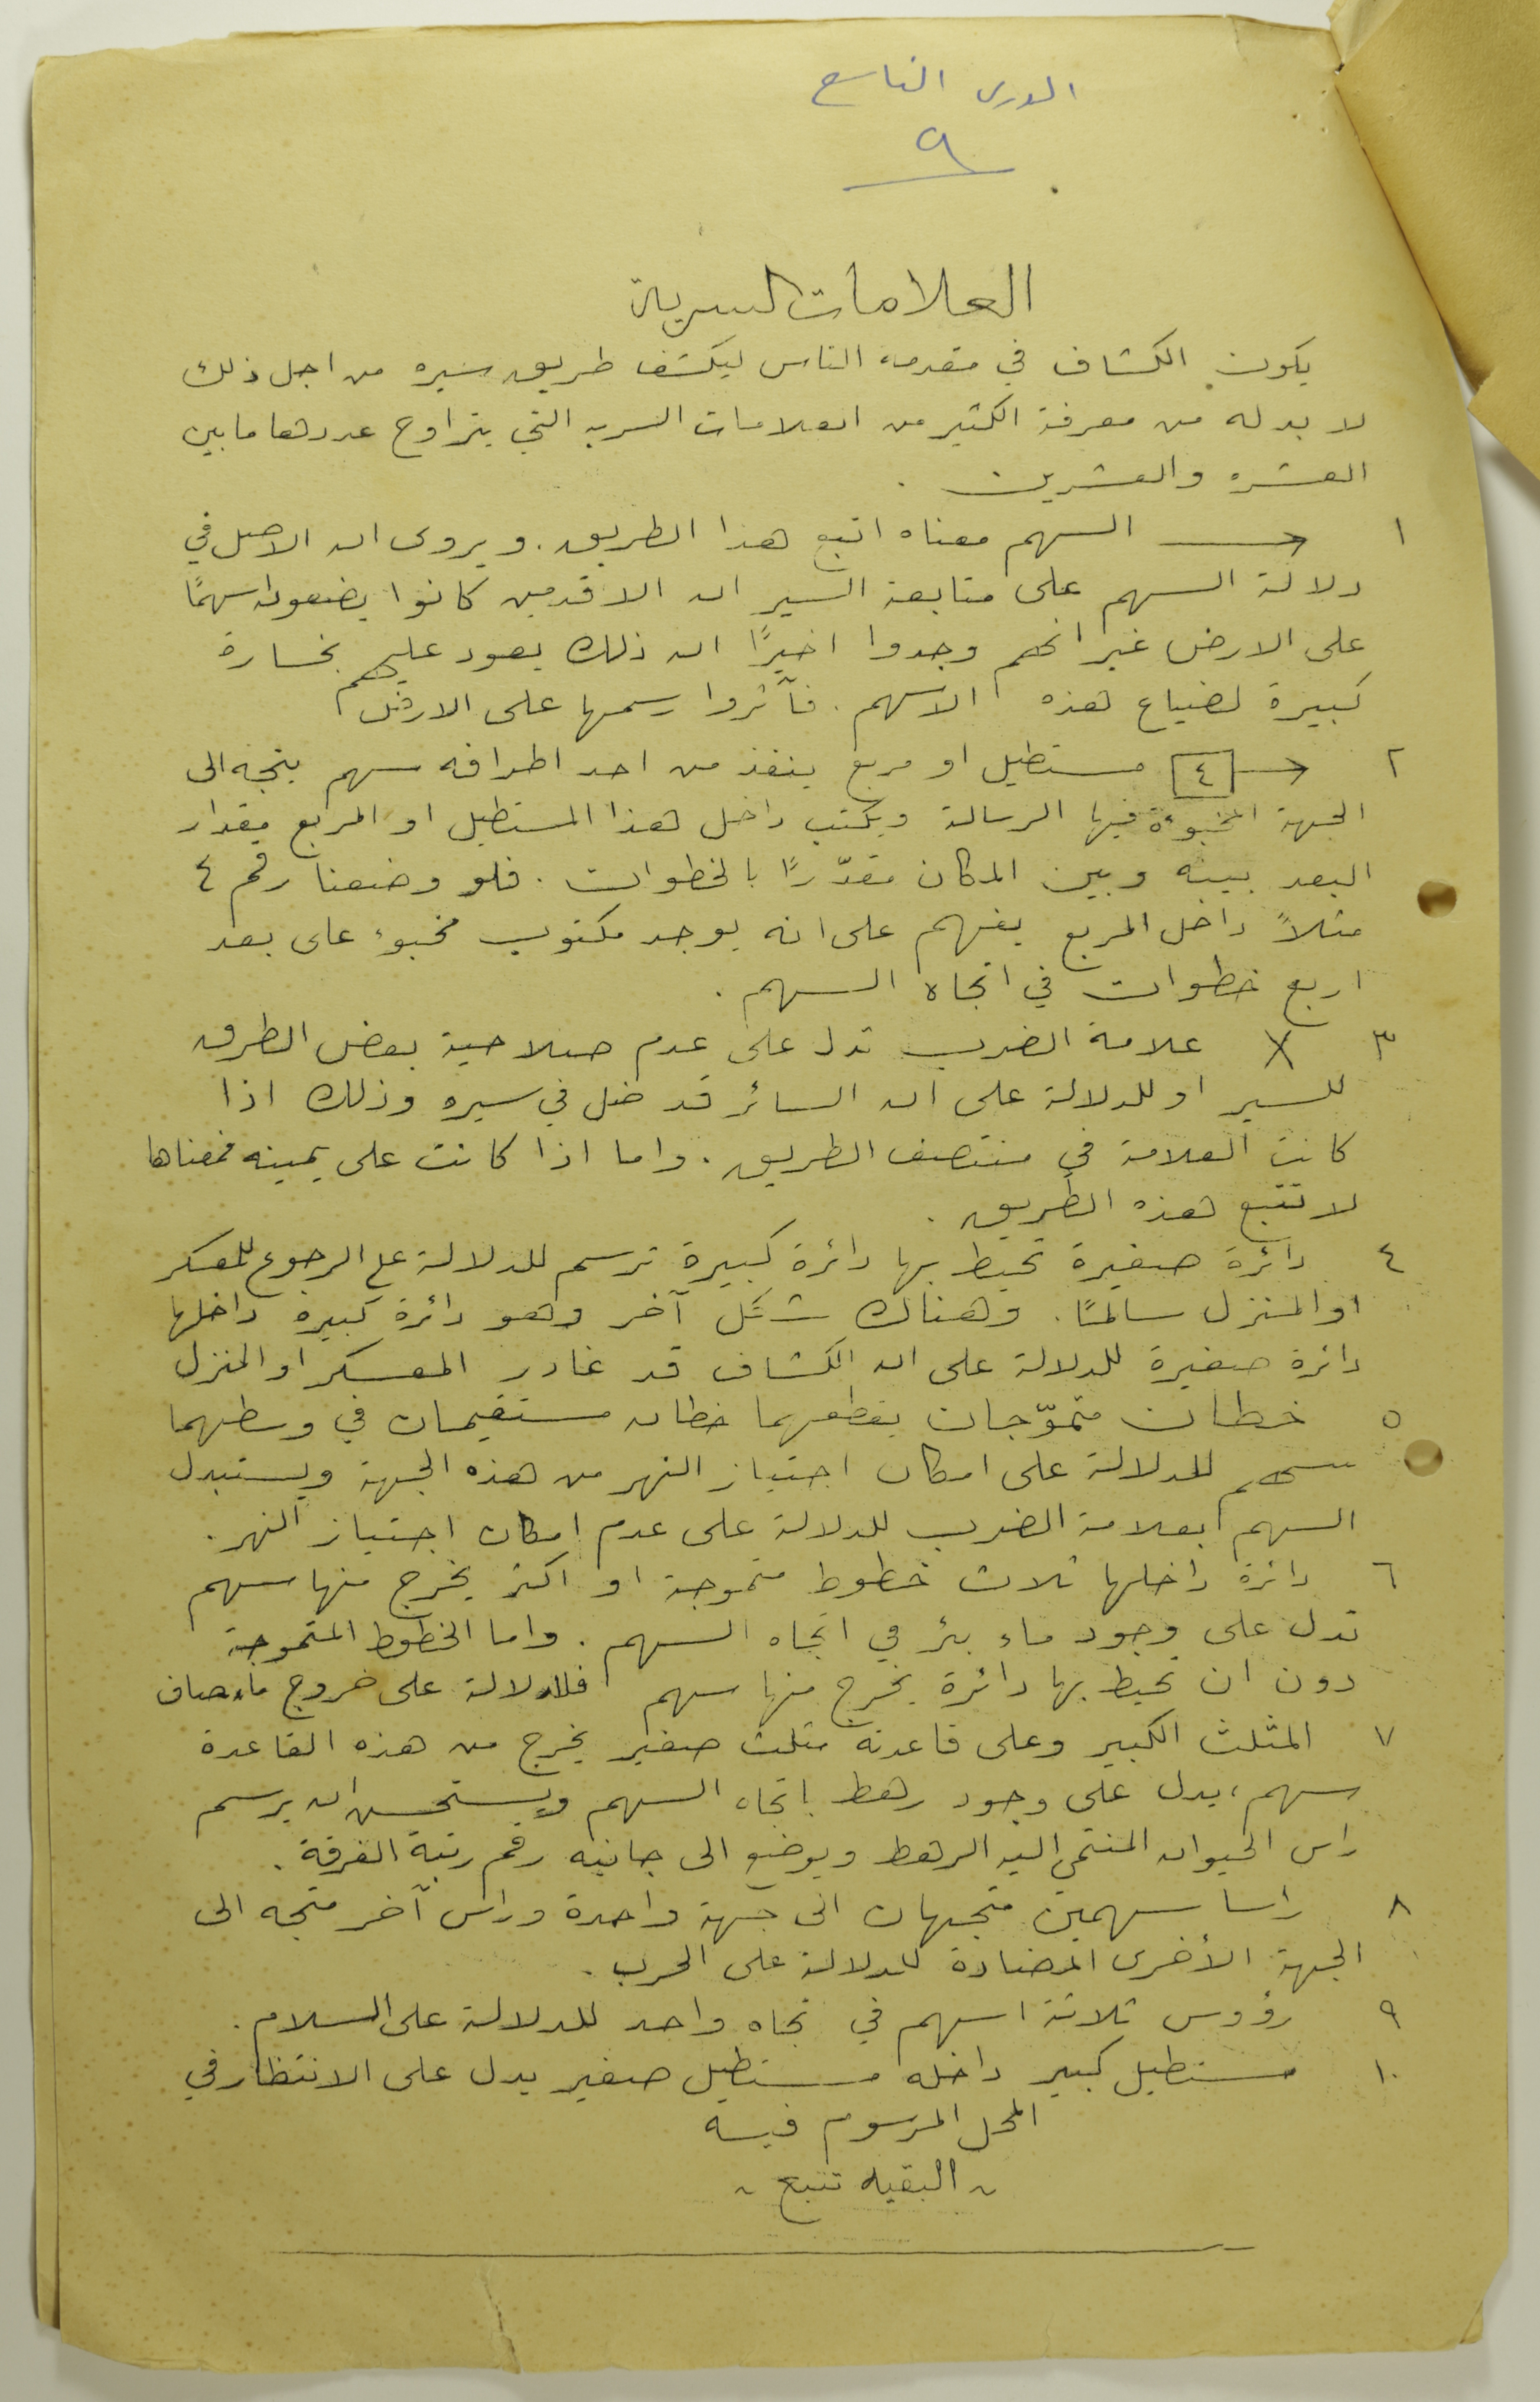 الدرس التاسع
٩
العلامات السرية
يكون الكشاف في مقدمة الناس ليكشف طريق سيره من اجل ذلك
لا بد له من معرفة الكثير من العلامات السريه التي يتراوح عددها ما بين
العشره والعشرين .
١ → السهم معناه اتبع هذا الطريق . ويروى ان الاصل في
دلالة السهم على متابعة السير ان الاقدمين كانوا يضعون اسهمًا
على الارض غير انهم وجدوا اخيرًا ان ذلك يعود عليهم بخسارة
كبيرة لضياع هذه الاسهم . فآثروا رسمها على الارض
٢ [٤]→ مستطيل او مربع ينفذ من احد اطرافه سهم يتجه الى
الجهة المخبوءة فيها الرسالة ويكتب داخل هذا المستطيل او المربع مقدار
البعد بينه وبين المكان مقدّرًا بالخطوات . فلو وضعنا رقم ٤
مثلاً داخل المربع يفهم على انه يوجد مكتوب مخبوء على بعد
اربع خطوات في اتجاه السهم .
٣ X علامة الضرب تدل على عدم صلاحية بعض الطرق
للسير او للدلالة على ان السائر قد ضل في سيره وذلك اذا
كانت العلامة في منتصف الطريق . واما اذا كانت على يمينه فمعناها
لا تتبع هذه الطريق .
٤ دائرة صغيرة تحيط بها دائرة كبيرة ترسم للدلالة على الرجوع للمعسكر
او المنزل سالمًا . وهناك شكل آخر وهو دائرة كبيره داخلها
دائرة صغيرة للدلالة على ان الكشاف قد غادر المعسكر او المنزل
٥ خطان متموّجان يقطعهما خطان مستقيمان في وسطهما
سهم للدلالة على امكان اجتياز النهر من هذه الجهة ويستبدل
السهم بعلامة الضرب للدلالة على عدم امكان اجتياز النهر .
٦ دائرة داخلها ثلاث خطوط متموجة او اكثر يخرج منها سهم
تدل على وجود ماء بئر في اتجاه السهم . واما الخطوط المتموجة
دون ان تحيط بها دائرة يخرج منها سهم فللدلالة على خروج ماء صاف
٧ المثلث الكبير وعلى قاعدته مثلث صغير يخرج من هذه القاعدة
سهم ، يدل على وجود رهط باتجاه السهم ويستحسن ان يرسم
راس الحيوان المنتمي اليه الرهط ويوضع الى جانبه رقم رتبة الفرقة .
٨ راسا سهمين متجهان الى جهة واحدة وراس آخر متجه الى
الجهة الأخرى المضادة للدلالة على الحرب .
٩ رؤوس ثلاثة اسهم في تجاه واحد للدلالة على السلام .
١٠ مستطيل كبير داخله مستطيل صغير يدل على الانتظار في
المحل المرسوم فيه
~ البقيه تتبع ~